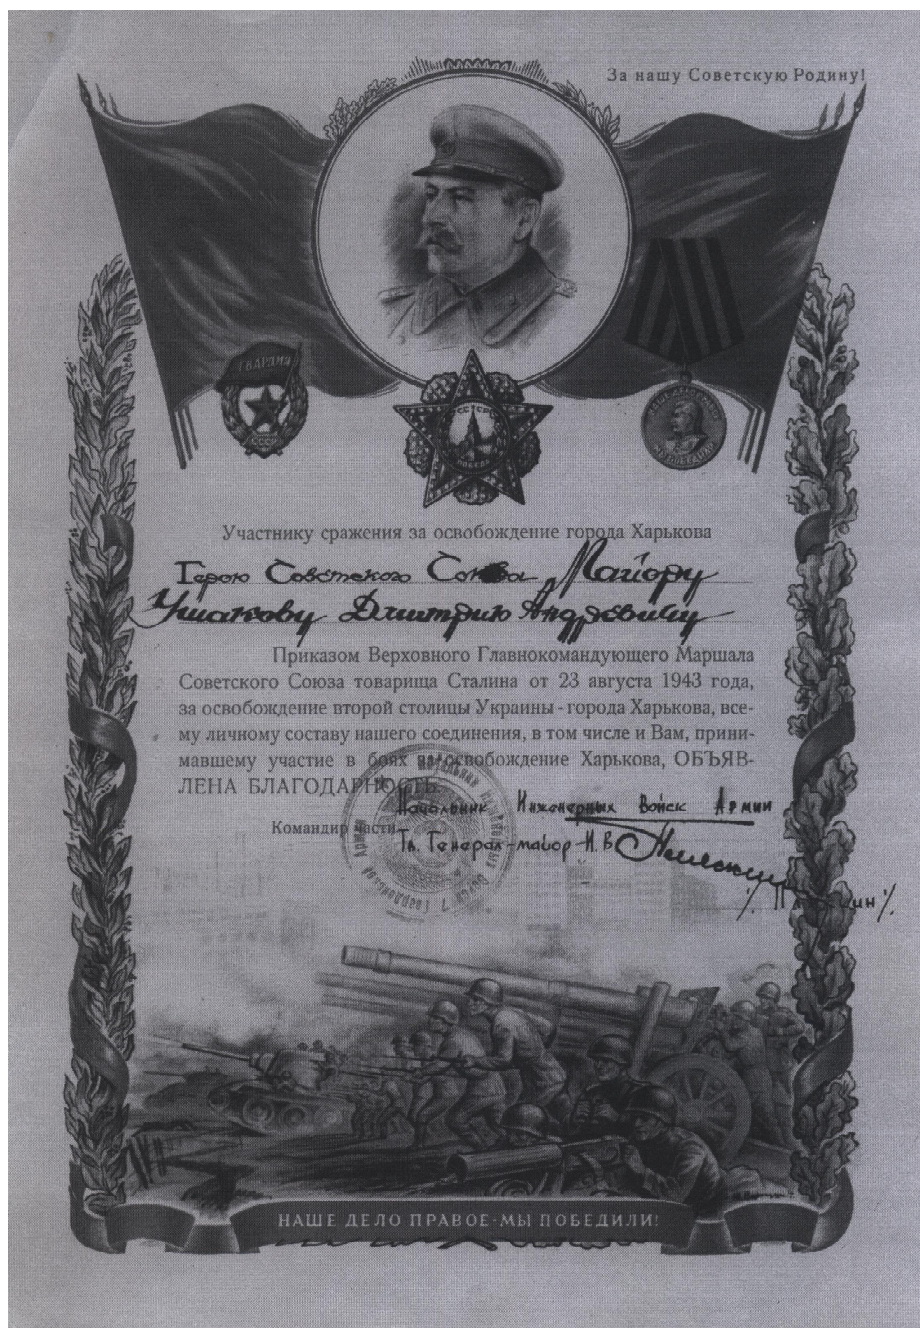 За нашу Советскую Родину!
ГВАРДИЯ
СССР
СССР
ПОБЕДА
Участнику сражения за освобождение города Харькова
Герою Советского Союза Майору
Ушакову Дмитрию Андреевичу
Приказом Верховного Главнокомандующего Маршала
Советского Союза товарища Сталина от 23 августа 1943 года,
за освобождение второй столицы Украины - города Харькова, все-
му личному составу нашего соединения, в том числе и Вам, прини-
мавшему участие в боях за освобождение Харькова, ОБЪЯВ-
ЛЕНА БЛАГОДАРНОСТЬ.
Начальник Инженерных Войск Армии
Командир части
Гв. Генерал-майор И. В.
НАШЕ ДЕЛО ПРАВОЕ - МЫ ПОБЕДИЛИ!